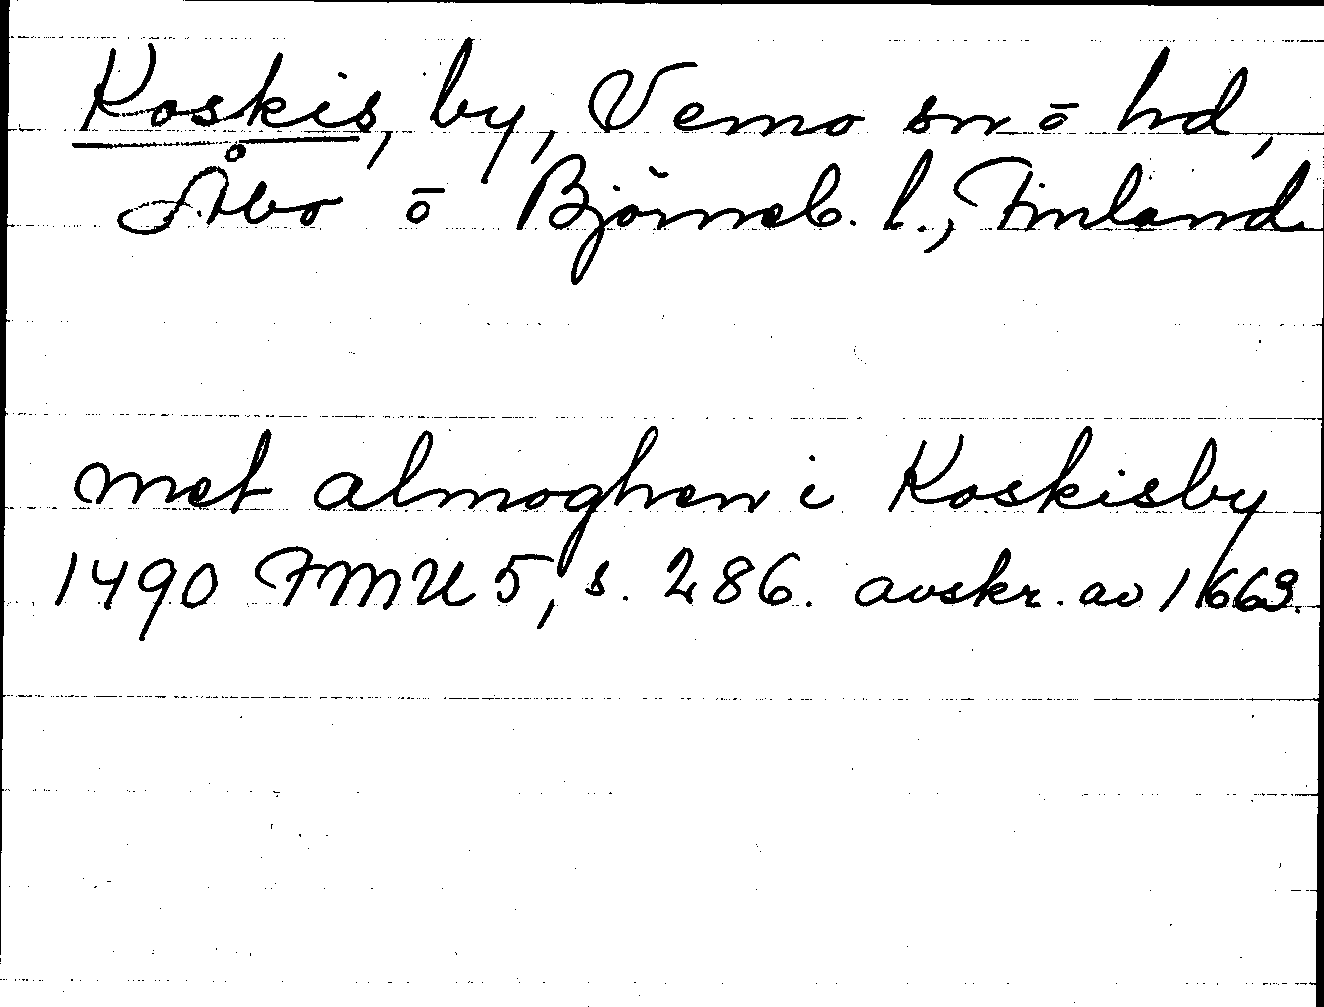 Koskis, by, Vemo sn o hd,
Åbo o Björneb. l., Finland
met almoghen i Koskisby
1490 FMU 5, s. 286. avskr. av 1663.